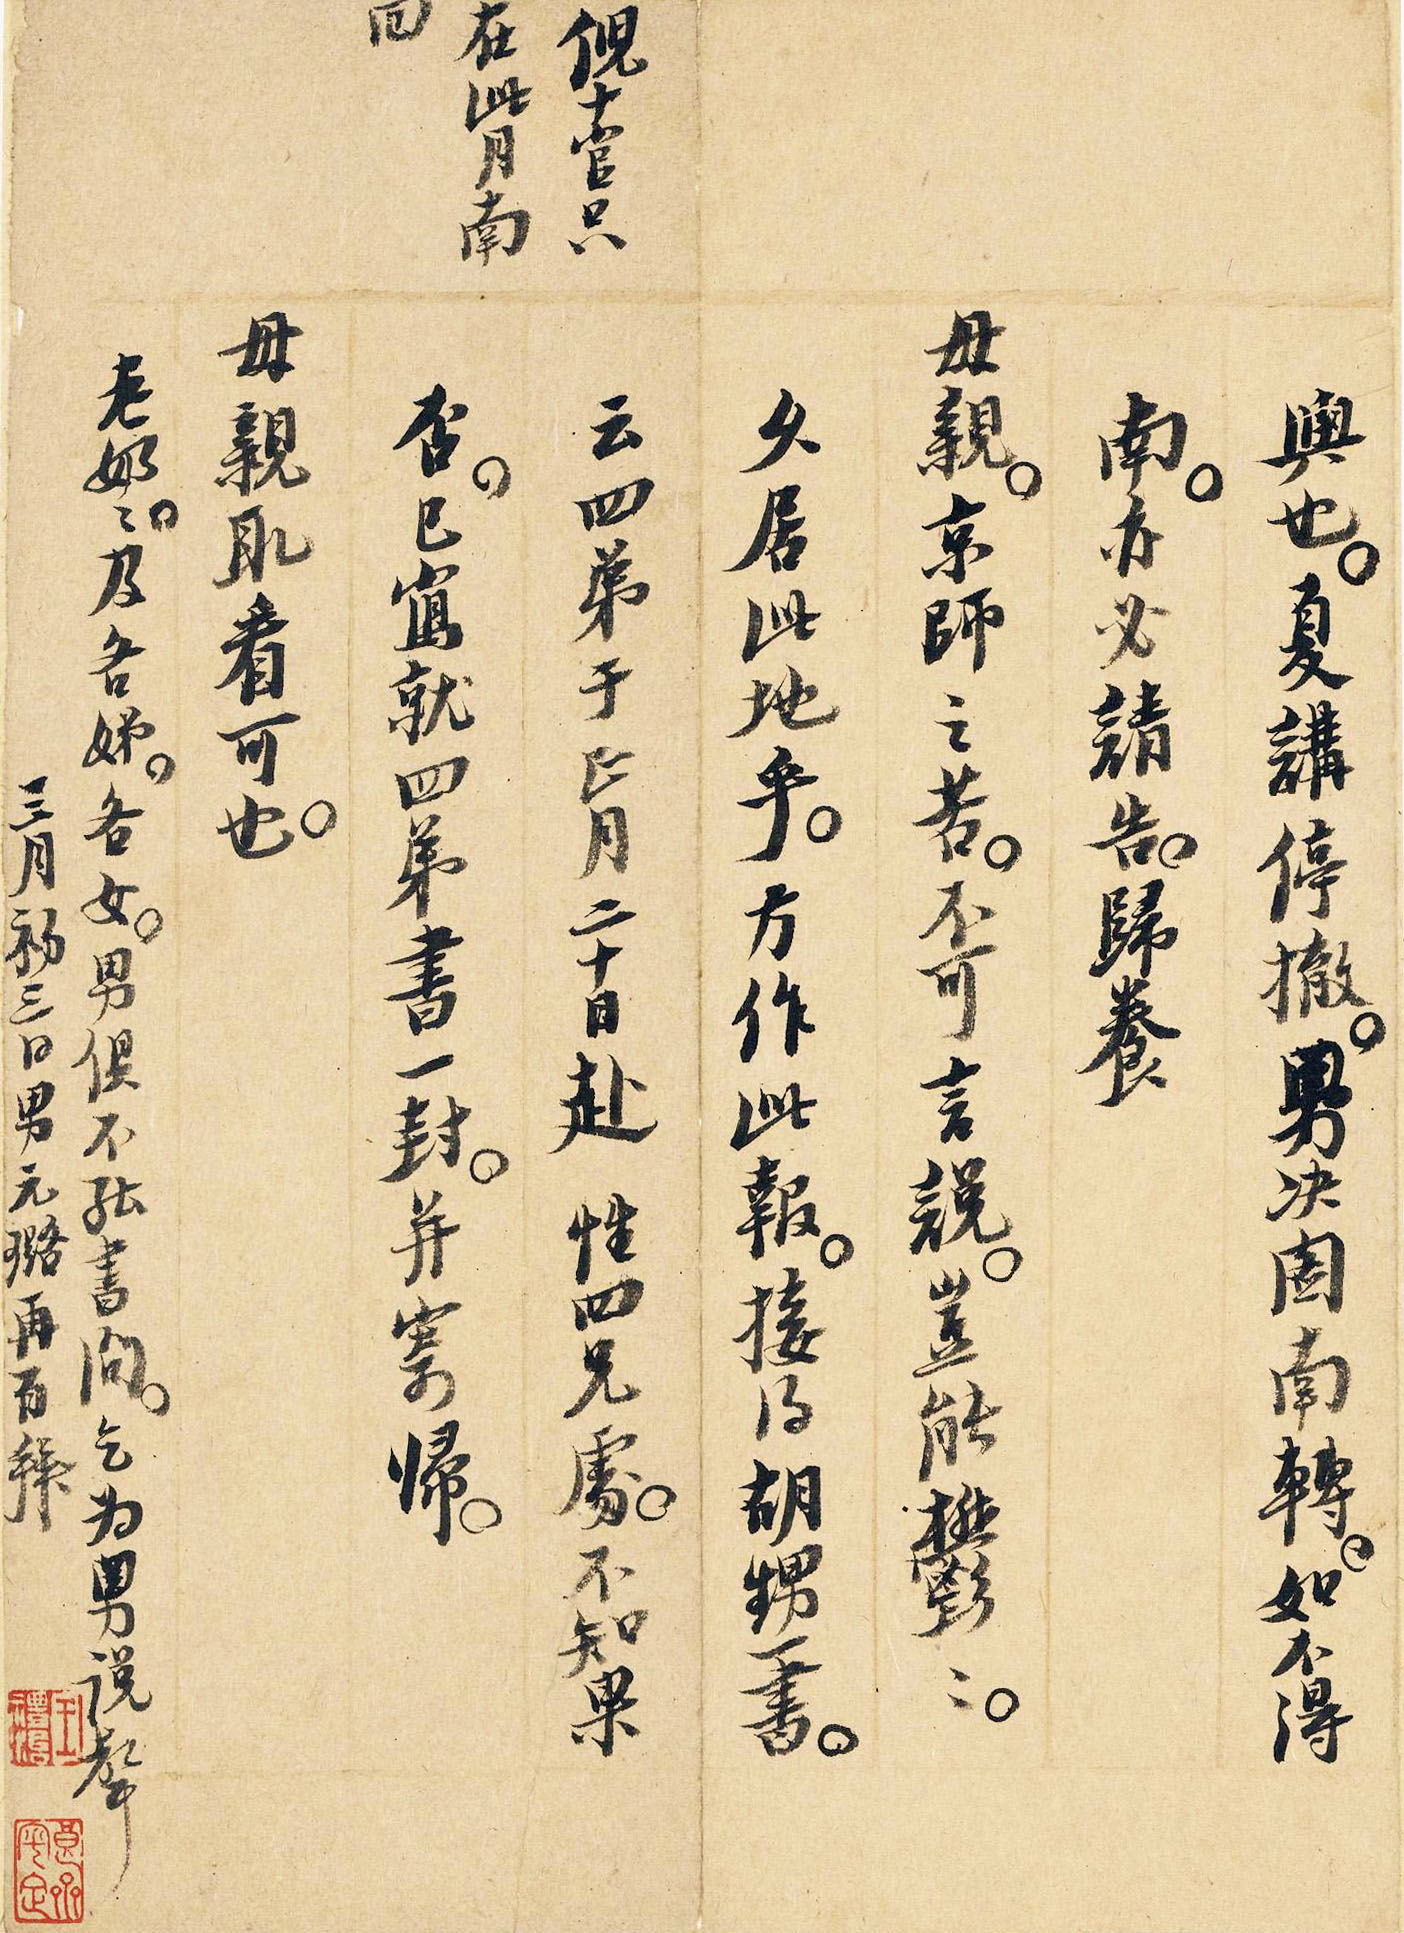 輿也。夏講停撤。男决图南轉。如不得
南。亦必請告。歸養
母親。京師之苦。不可言説。豈能鬱鬱〻。
久居此地乎。方作此報。接得胡甥一書。
云四弟于正月二十日赴 性四兄處。不知果
否。已寫就四弟書一封。并寄歸。
母親取看可也。
老奶〻。及各娣。各女。男俱不能書问。乞为男説聲
三月初三日男元璐再百拜
倪十官只
在此月南
回